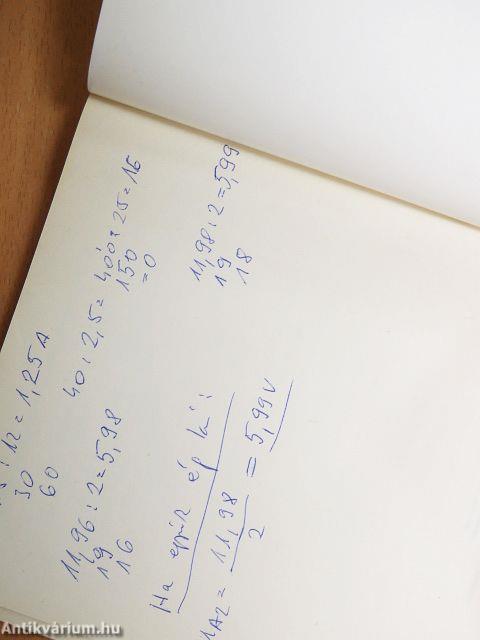 : 12 = 1,25A
30
60
40 : 2,5 = 400 : 25 = 16
150
=0
11,96 : 2 = 5,98
19
16
11,98 : 2 = 5,99
19
18
Ha egyik ép
= 11,98
2
= 5,99V
Antikvárium.hu